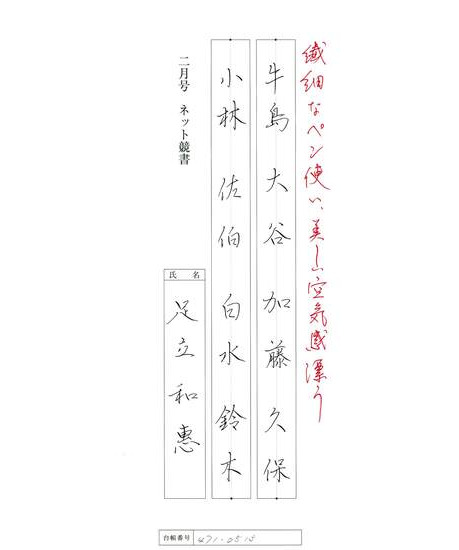 繊細なペン使い、美しい空気感漂う
牛島 大谷 加藤 久保
小林 佐伯 白水 鈴木
二月号 ネット競書
氏名
足立和惠
台帳番号